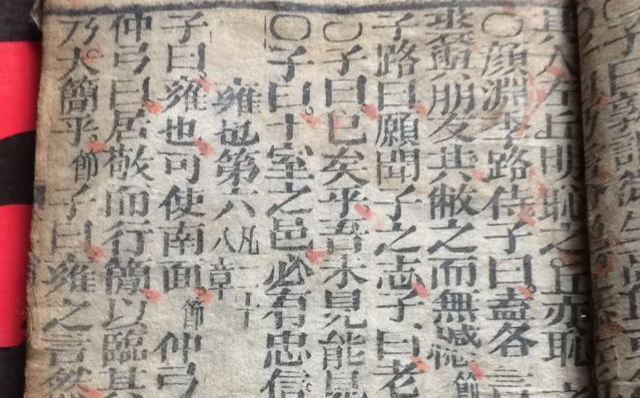 〇子曰孰謂微生高
其人左丘明恥之丘亦恥之
〇顏淵季路侍子曰盍各言
裘與朋友共敝之而無憾節
子路曰願聞子之志子曰老
〇子曰已矣乎吾未見能見
〇子曰十室之邑必有忠信
雍也第六凡二十八章
子曰雍也可使南面節仲弓
仲弓曰居敬而行簡以臨其
乃大簡乎節子曰雍之言然